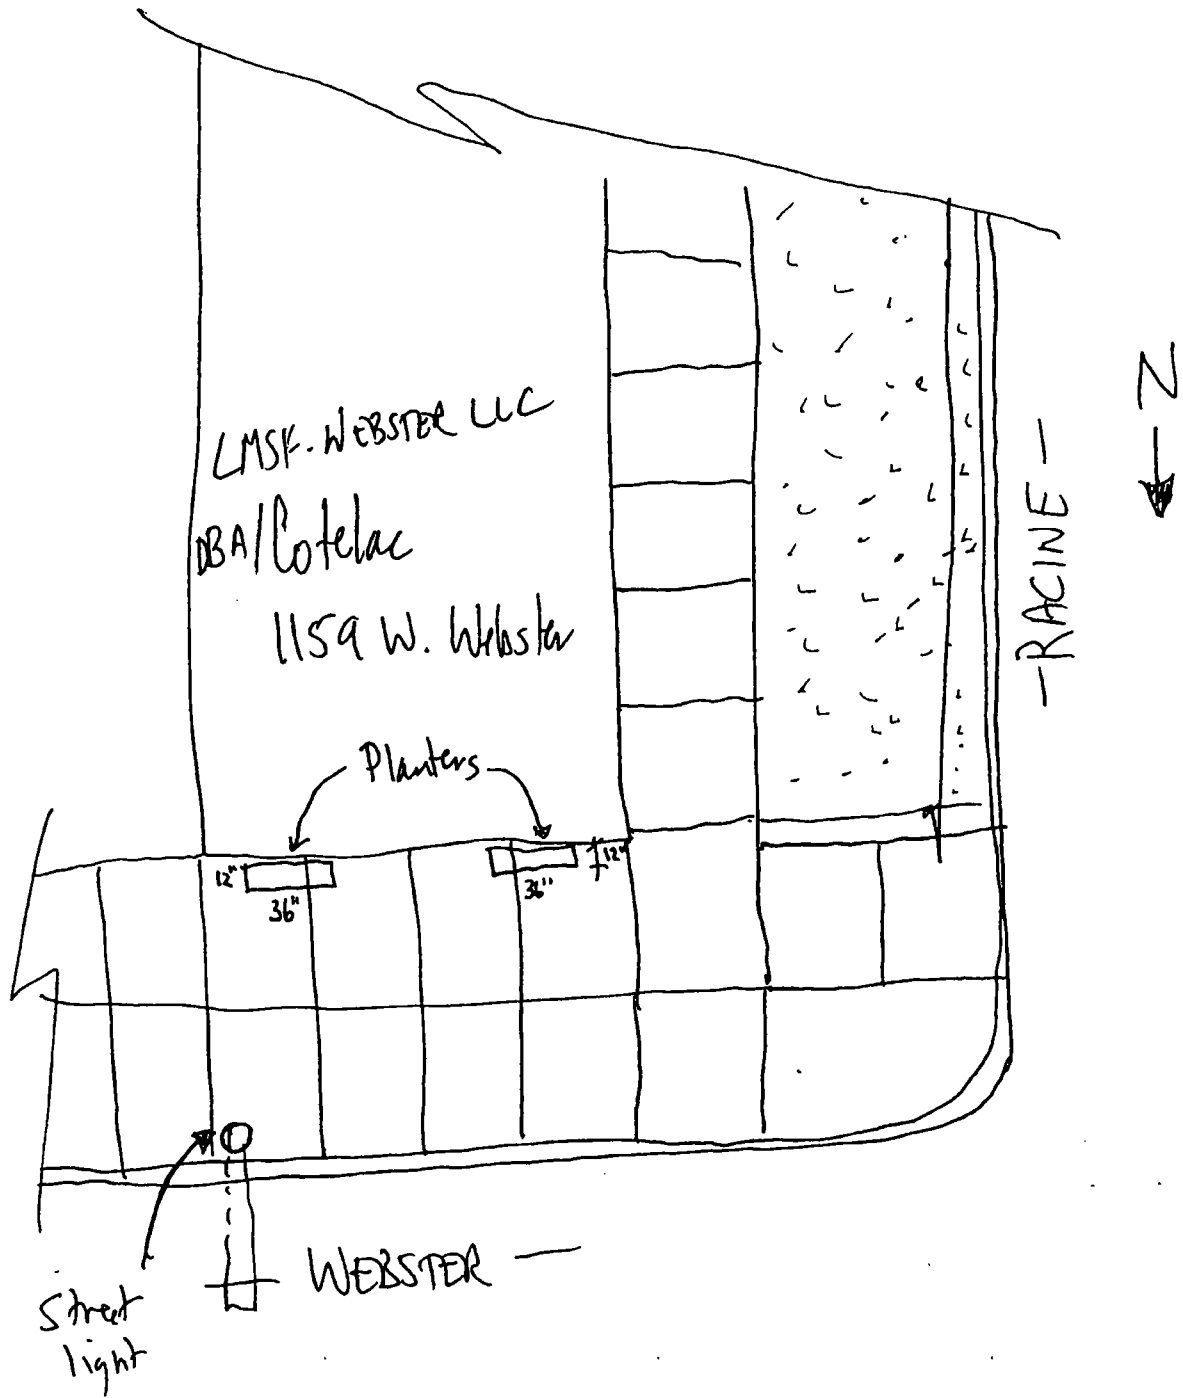 LMSF. WEBSTER LLC
DBA/Cotelac
1159 W. Webster
Planters
12"
36"
36"
12"
— RACINE —
N
WEBSTER —
Street
light